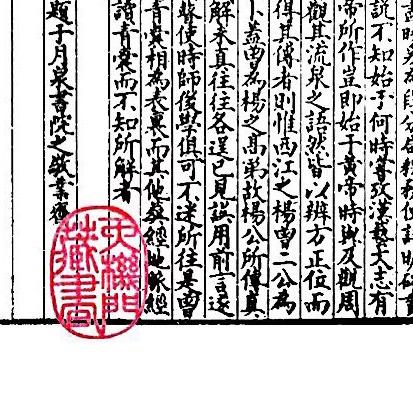 說不知始于何時嘗攷漢藝文志有
帝所作豈即始于黃帝時與及觀周
觀其流泉之語然皆以辨方正位而
得其傳者則惟西江之楊曾二公為
蓋曾為楊之高弟故楊公所傳真
解未真往往各逞己見誤用前言遂
使時師後學俱可不迷所往是曾
青囊相為表裏而其他發經地脈經
讀青囊而不知所解者
題于月泉書院之敬業
天機門
藏書